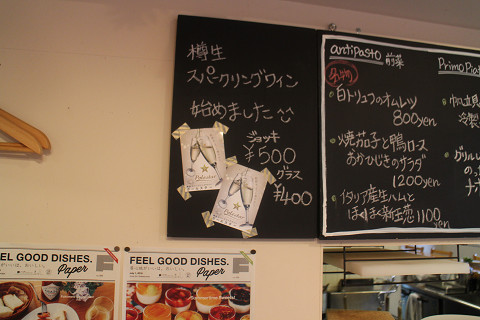 樽生
スパークリングワイン
始めました
ジョッキ
¥500
グラス
¥400
antipasto 前菜
名物
白トリュフのオムレツ
800yen
焼茄子と鴨ロース
おかひじきのサラダ
1200yen
イタリア産生ハムと
ほくほく新玉葱 1100
yen
FEEL GOOD DISHES.
Paper
FEEL GOOD DISHES.
Paper